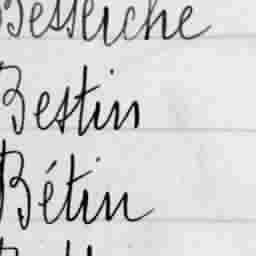 Besseiche
Bestin
Bétin